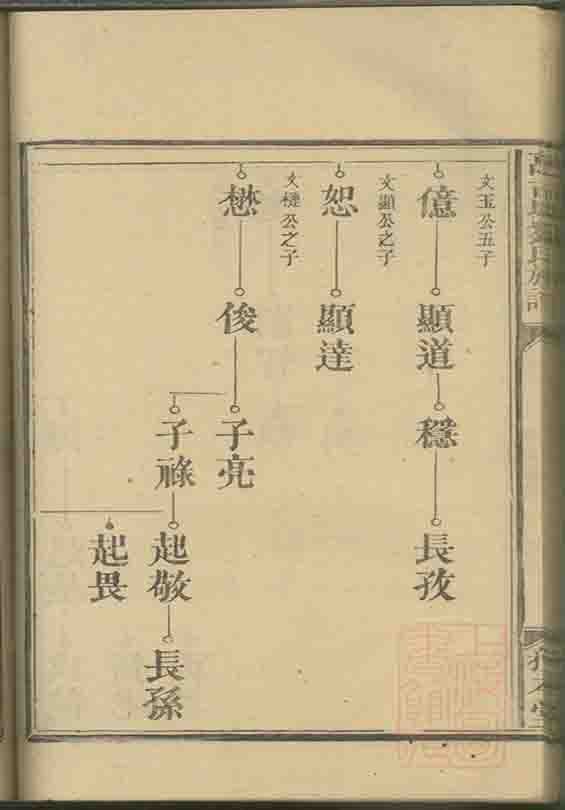 文玉公五子
億
顯道
穩
長孜
文顯公之子
恕
顯達
文櫣公之子
懋
俊
子亮
子祿
起敬
長孫
起畏